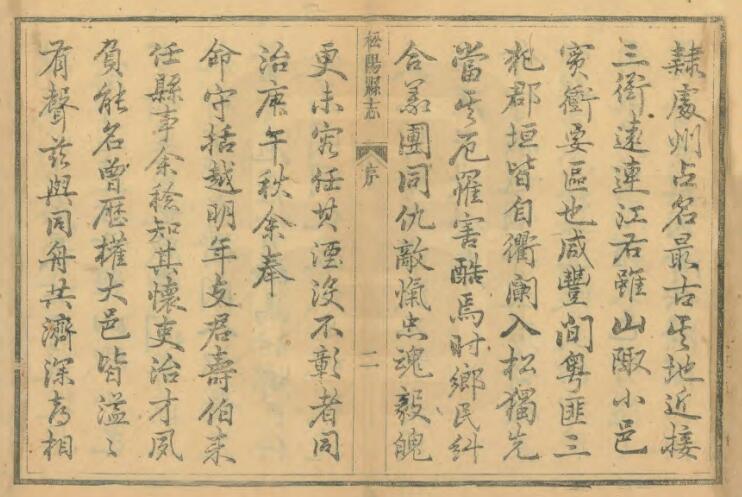 隸處州占名最古其地近接
三衢遠連江右雖山陬小邑
實衝要區也咸豐間粵匪三
犯郡垣皆自衢闌入松獨先
當其厄罹害酷焉时鄉民糾
合義團同仇敵愾忠魂毅魄
松陽縣志
序
二
更未容任其湮沒不彰者同
治庚午秋余奉
命守括越明年支君壽伯来
任縣事余稔知其懷吏治才夙
負能名曾歷權大邑皆溢〻
有聲玆與同舟共濟深喜相